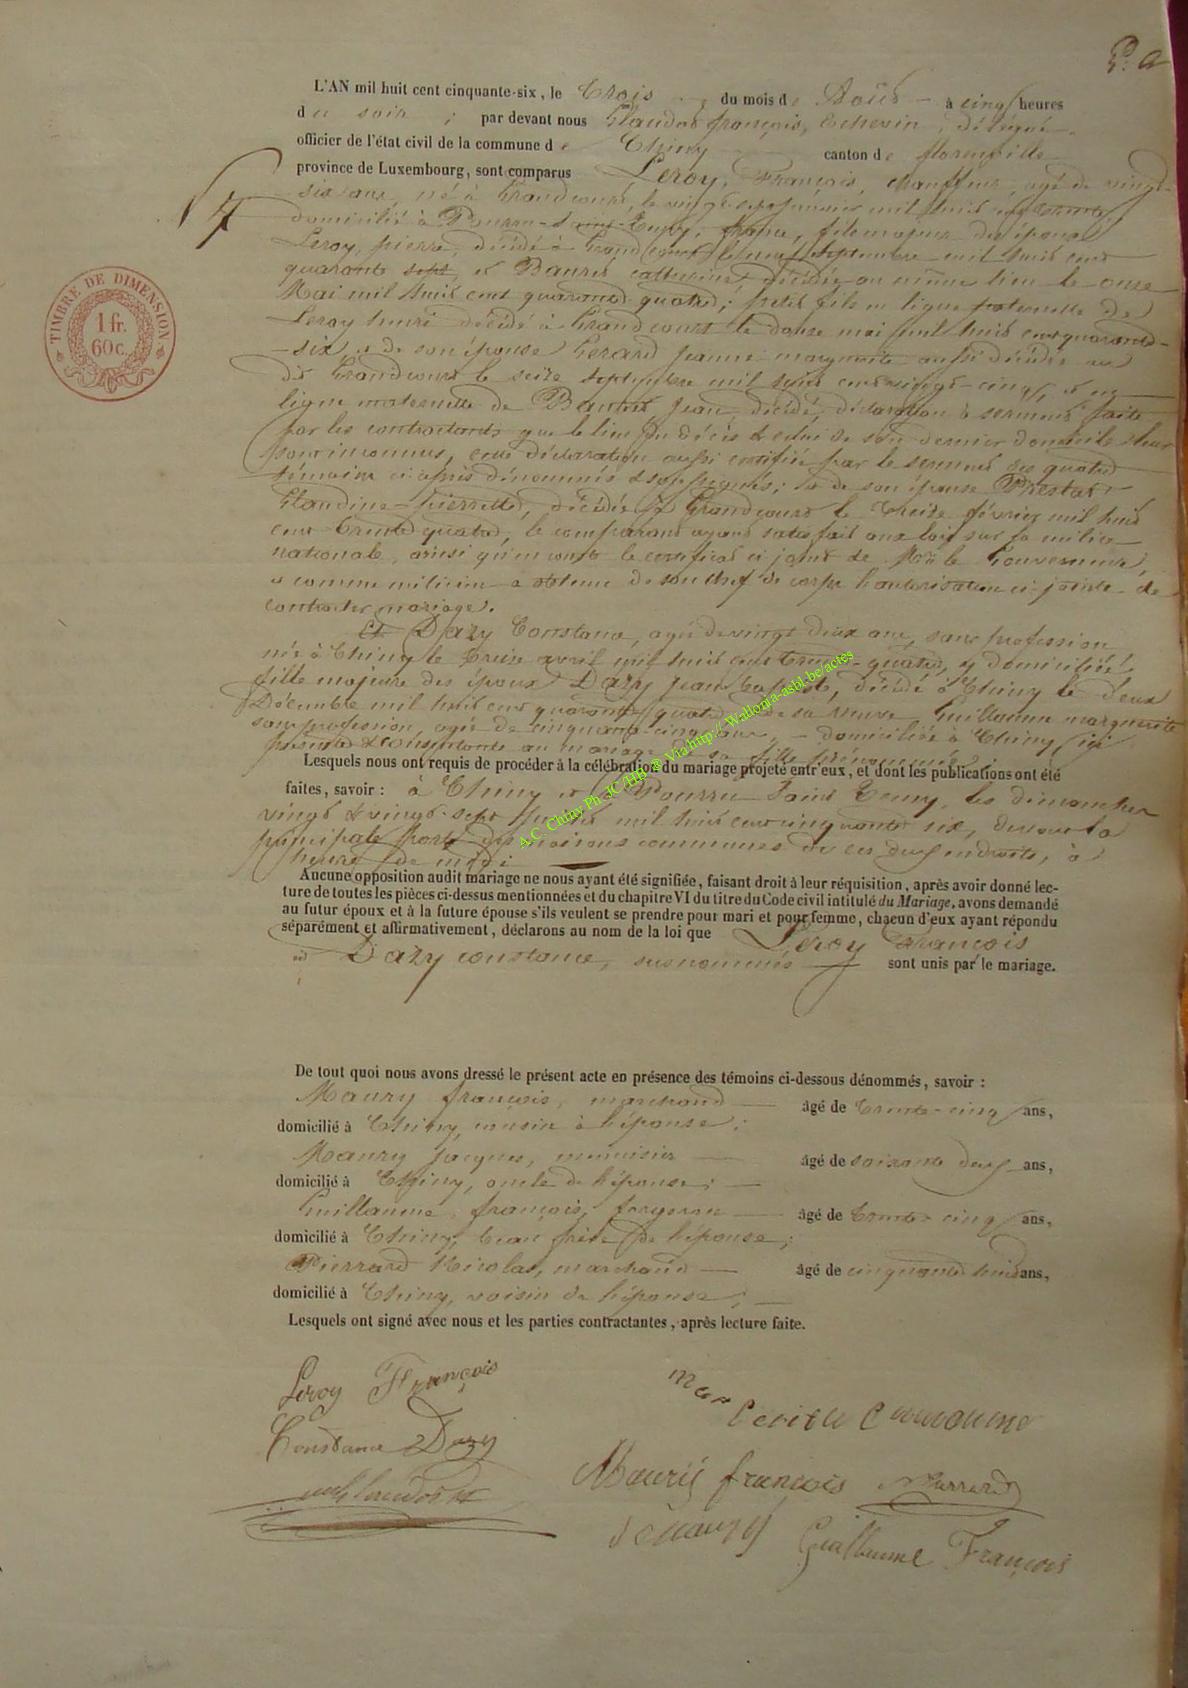 P. a
L'AN mil huit cent cinquante-six, le Trois du mois de Août à cinq heures
du soir ; par devant nous Claudot françois, Echevin, délégué
officier de l'état civil de la commune de Chiny canton de florenville
province de Luxembourg, sont comparus Leroy, François, chauffeur, agé de vingt-
4
TIMBRE DE DIMENSION
1 fr.
60c.
six ans, né à Grandcourt, le vingt-sept janvier mil huit cent trente,
domicilié à Pourru-Saint-Remy, france, fils majeur des époux
Leroy, pierre, décédé à Grandcourt le neuf septembre mil huit cent
quarante sept, et catherine, décédée au même lieu le onze
Mai mil huit cent quarante quatre ; petit fils en ligne paternelle de
Leroy henri décédé à Grandcourt le douze mai mil huit cent quarante-
-six et de son épouse Gerard jeanne-marguerite aussi décédée au
dit Grandcourt le seize septembre mil huit cent vingt-cinq, et en
ligne maternelle de jean, décédé, déclaration à serment faite
par les contractants que le lieu du décès & celui de son dernier domicile leur
sont inconnus, cette déclaration aussi certifiée par le serment des quatre
témoins ci-après dénommés & soussignés ; et de son épouse
Claudine-pierrette, décédée à Grandcourt le treize février mil huit
cent trente quatre, le comparant ayant satisfait aux lois sur la milice
nationale, ainsi qu'en conste le certificat ci joint de Mr le Gouverneur,
et comme milicien a obtenu de son chef de corps l'autorisation ci-jointe de
contracter mariage.
Et Dazy Constance, agée de vingt deux ans, sans profession
née à Chiny le treize avril mil huit cent trente-quatre, y domiciliée,
fille majeure des époux Dazy jean baptiste, décédé à Chiny le deux
Décembre mil huit cent quarante quatre & de sa veuve Guillaume marguerite
sans profession, agée de cinquante cinq ans, domiciliée à Chiny, ici
présente & consentante au mariage de sa fille prénommée
Lesquels nous ont requis de procéder à la célébration du mariage projeté entr'eux, et dont les publications ont été
faites, savoir : à Chiny et à Pourru Saint Remy, les dimanches
vingt & vingt-sept juillet mil huit cent cinquante six, devant la
principale porte des maisons communes de ces deux endroits, à
heure de midi
A.C. Chiny Ph JC/HB ® Via http://Wallonia-asbl.be/actes
Aucune opposition audit mariage ne nous ayant été signifiée, faisant droit à leur réquisition, après avoir donné lec-
ture de toutes les pièces ci-dessus mentionnées et du chapitre VI du titre du Code civil intitulé du Mariage, avons demandé
au futur époux et à la future épouse s'ils veulent se prendre pour mari et pour femme, chacun d'eux ayant répondu
séparément et affirmativement, déclarons au nom de la loi que Leroy François
et Dazy constance, susnommés sont unis par le mariage.
De tout quoi nous avons dressé le présent acte en présence des témoins ci-dessous dénommés, savoir :
Maury françois, marchand âgé de trente-cinq ans,
domicilié à Chiny, cousin à l'épouse ;
Maury jacques, menuisier âgé de soixante deux ans,
domicilié à Chiny, oncle de l'épouse ;
Guillaume françois, forgeron âgé de trente-cinq ans,
domicilié à Chiny, beau frère de l'épouse ;
Pierrard Nicolas, marchand âgé de cinquante huit ans,
domicilié à Chiny, voisin de l'épouse ;
Lesquels ont signé avec nous et les parties contractantes, après lecture faite.
Leroy François
Constance Dazy
Mauris françois
Guillaume François